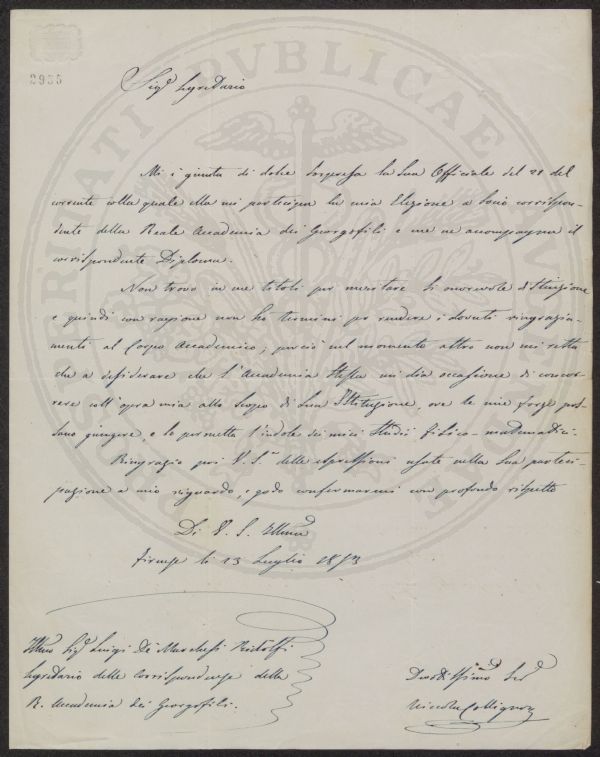 2985
Sig.r Segretario
Mi è giunta di dolce sorpresa la Sua Officiale del 21 del
corrente colla quale ella mi partecipa la mia Elezione a Socio corrispon-
dente della Reale Accademia dei Georgofili e me ne accompagna il
corrispondente Diploma.
Non trovo in me titoli per meritare sì onorevole distinzione
e quindi con ragione non ho termini per rendere i dovuti ringrazia-
menti al Corpo Accademico; perciò nel momento altro non mi resta
che a desiderare che l'Accademia stessa mi dia occasione di concor-
rere coll'opra mia allo Scopo di Sua Istituzione, ove le mie forze pos-
sano giungere, e lo permetta l'indole dei miei Studii fisico-matematici.
Ringrazio poi V. S. delle espressioni usate nella Sua parteci-
pazione a mio riguardo, e godo confermarmi con profondo rispetto
Di V. S. Illma
Firenze li 23 Luglio 1873
Illmo Sig.r Luigi De' Marchesi Ridolfi
Segretario delle Corrispondenze della
R. Accademia dei Georgofili.
Devotissimo Ser.
Niccola Collignon